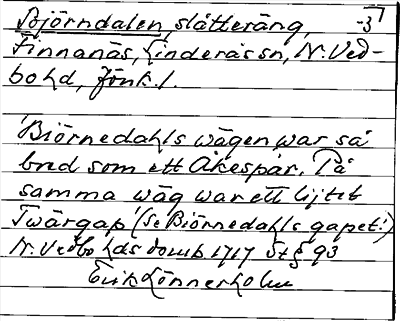 Björndalen, slåtteräng, -37
Finnanäs, Linderås sn, N. Ved-
bo hd, Jönk. l.
"Biörnedahls wägen war så
bred som ett Åkespár. På
samma wäg war ett lijtet
Twärgap" (se Biörnedahls gapet!)
N. Vedbo hds domb. 1717 St § 93
Erik Lönnerholm